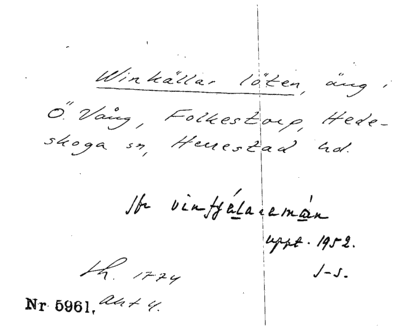 Winkällar löten, äng i
Ö. Vång, Folkestorp, Hede-
skoga sn, Herrestad hd.
Jfr vintjälaramån
uppt. 1952.
J-s.
Lh. 1774
Nr 5961, akt 4.